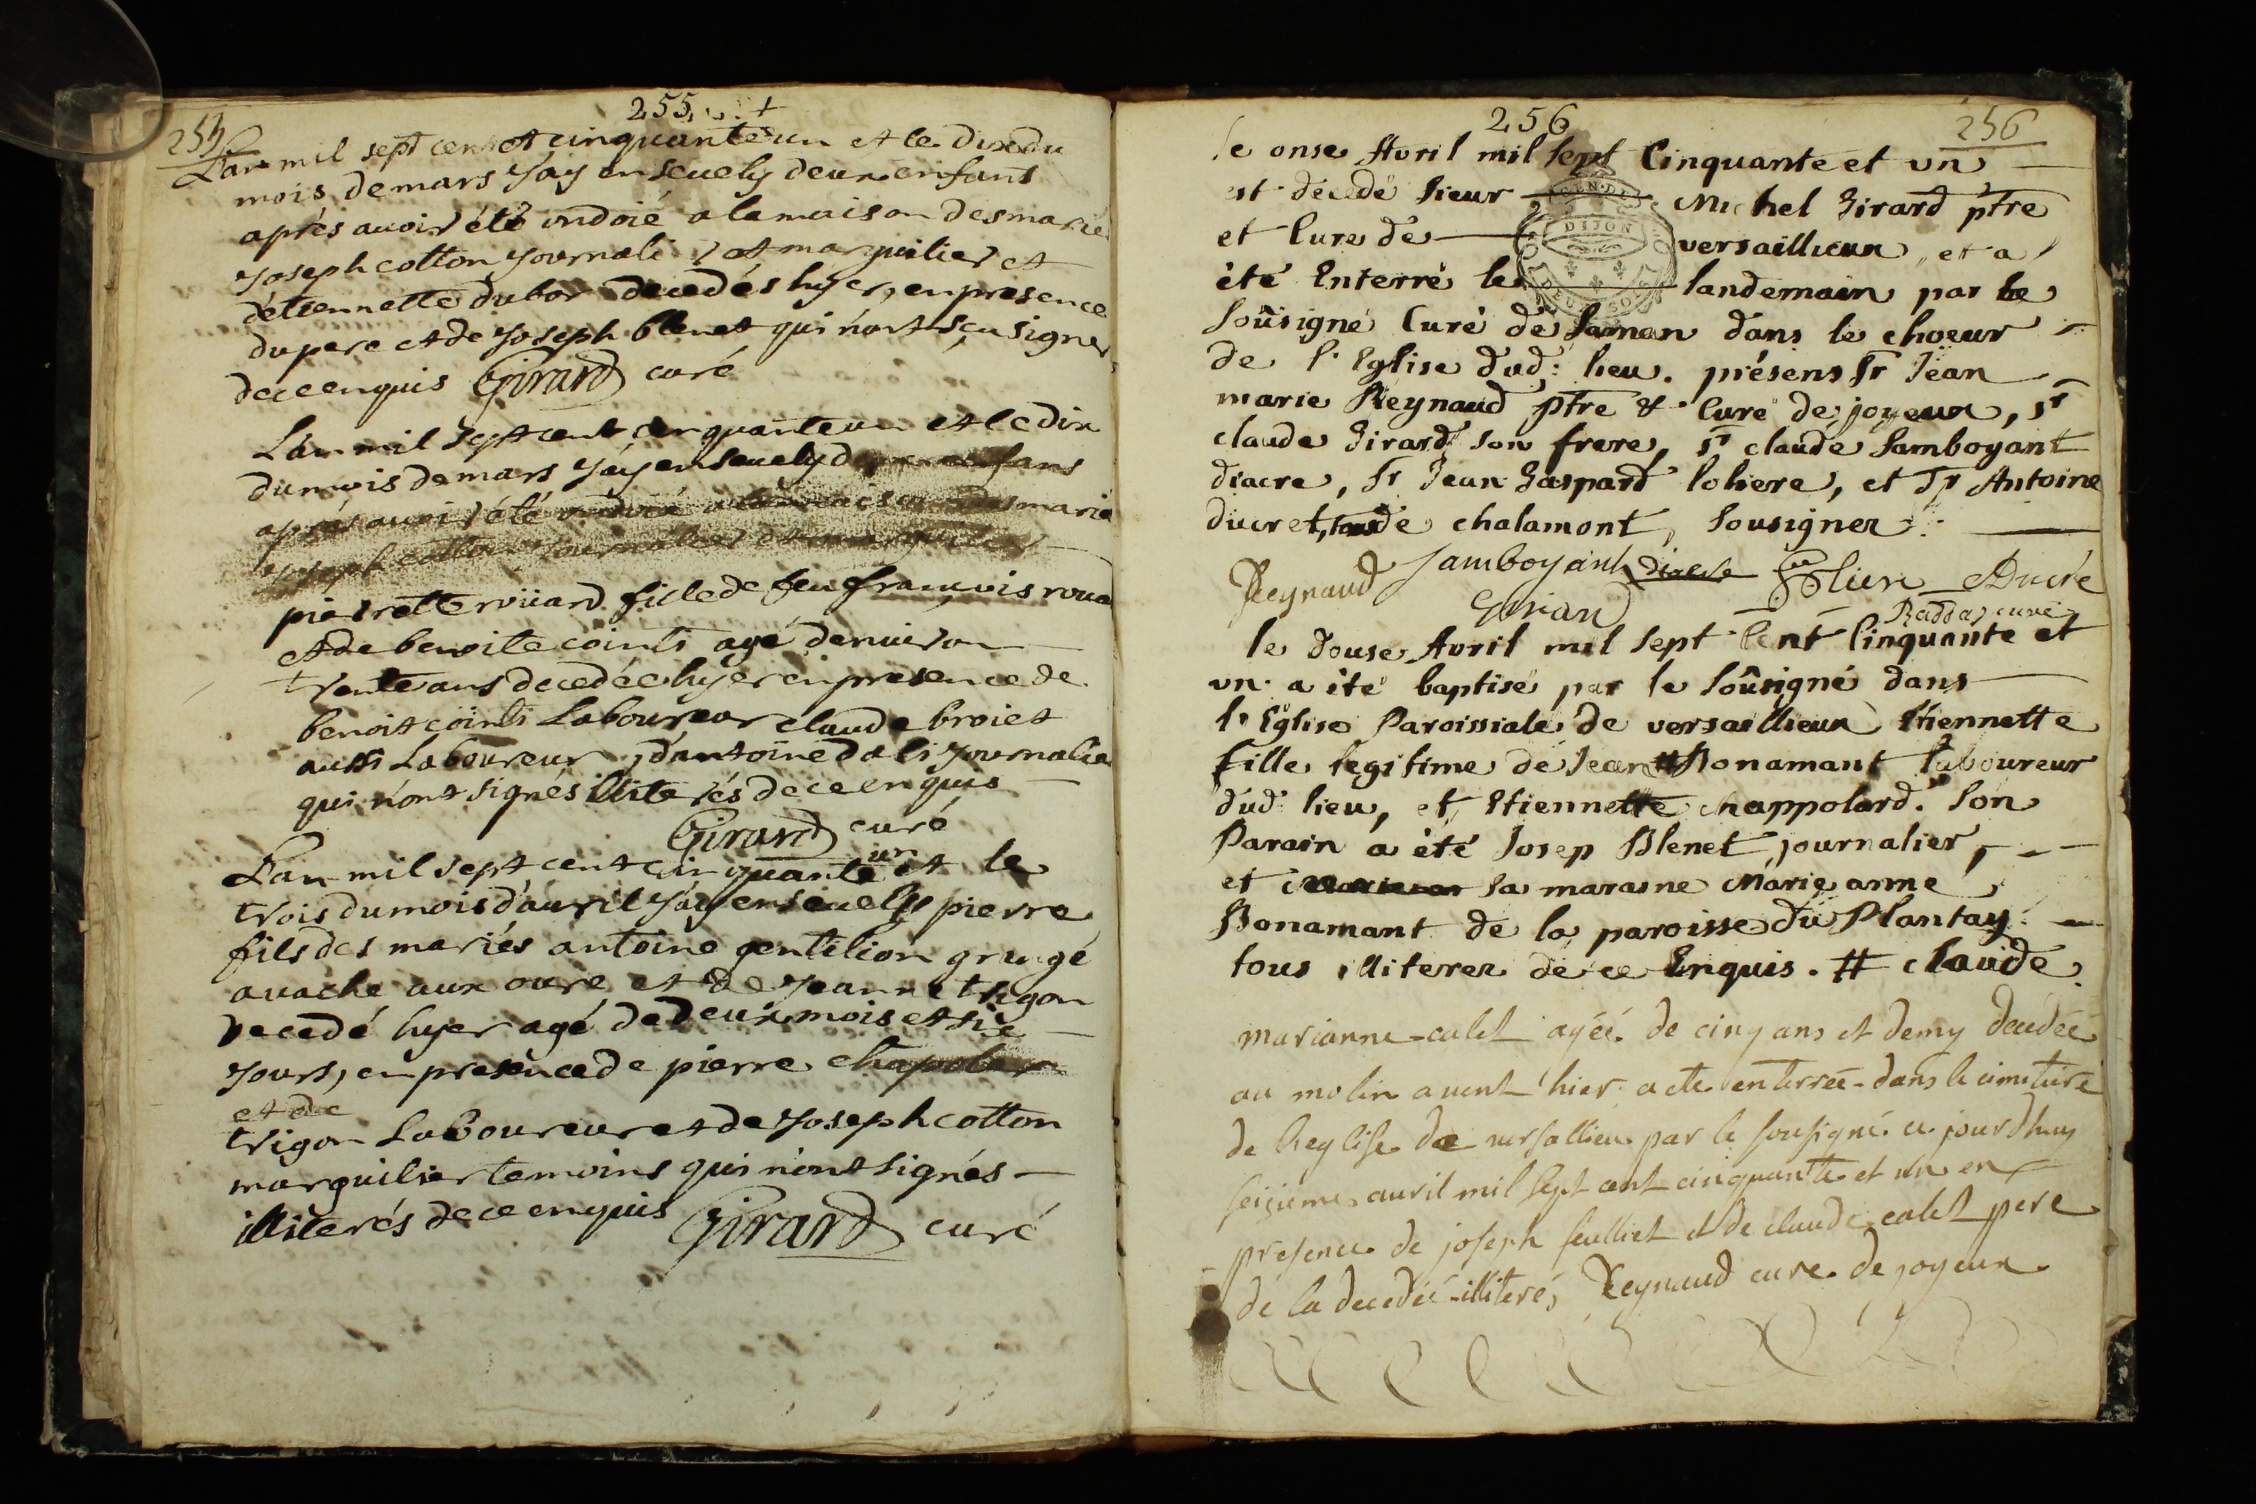 255
255
L'an mil sept cent et cinquante un et le dix du
mois de mars j'ay enseuely deux enfans
aprés auoir été ondoié a la maison des mariés
Joseph cotton journali et marguilier et
détiennette dubor decedés hyer, en presence
du pere et de joseph blenet qui n'ont sçu signer
de ce enquis Girard curé
L'an mil sept cent cinquante un et le dix
du mois de mars j'ay enseuely enfans
aprés auoir été ondoié a la maison des mariés
joseph cotton journalier et marguilier
pierrette rüiard fille de feu françois roua
et de benoite cointi agé denuiron
trente ans decedée hyer en presence de
benoit cointi Laboureur claude broiet
aussi Laboureur, d'antoine dali journalie
qui n'ont signés illiterés de ce enquis
Girard curé
L'an mil sept cent cinquante un et le
trois du mois d'auril j'ay enseuely pierre
fils des mariés antoine gentilion grangé
a uache aux oure et de jeanne trigon
decedé hyer agé de deux mois et sie
jours, en presence de pierre chapolar
et de
trigon Laboureur et de joseph cotton
marguilier temoins qui n'ont signés
illiterés de ce enquis Girard curé
256
256
le onse Avril mil sept Cinquante et vn
est décédé sieur Michel Girard ptre
et Curé de versaillieux, et a
été Enterré le landemain par le
soûsigné Curé de Saman dans le choeur
de l'Eglise dud: lieu. présens Sr Jean
marie Reynaud Ptre & Curé de joyeux, sr
claude Girard son frere, sr claude Samboyant
diacre, Sr Jean Gaspard loliere, et Sr Antoine
ducret, tous de chalamont, sousignez
CEN. DE DIJON
DEUX SOLS
Reynaud Samboyant diacre Ducré
Girard
le douse Avril mil sept Cent Cinquante et
vn a été baptisé par le soûsigné dans
l'Eglise Paroissiale de versaillieux Etiennette
fille legitime de Jean # Bonamant laboureur
dud: lieu, et Etiennette chappolard. son
Parain a été Josep Blenet journalier,
et sa maraine Marie anne
Bonamant de la paroisse du Plantay.
tous illiterez de ce Enquis. # claude
marianne calet agéé de cinq ans et demy decedéé
au molin auent hier a ete enterréé dans le cimetiere
de lheglise de versallieu par le sousigné ce jourdhuy
seiziéme auril mil sept cent cinquante et un en
presence de joseph feulliet et de claude calet pere
de la decedéé illiterés Reynaud cure de joyeux